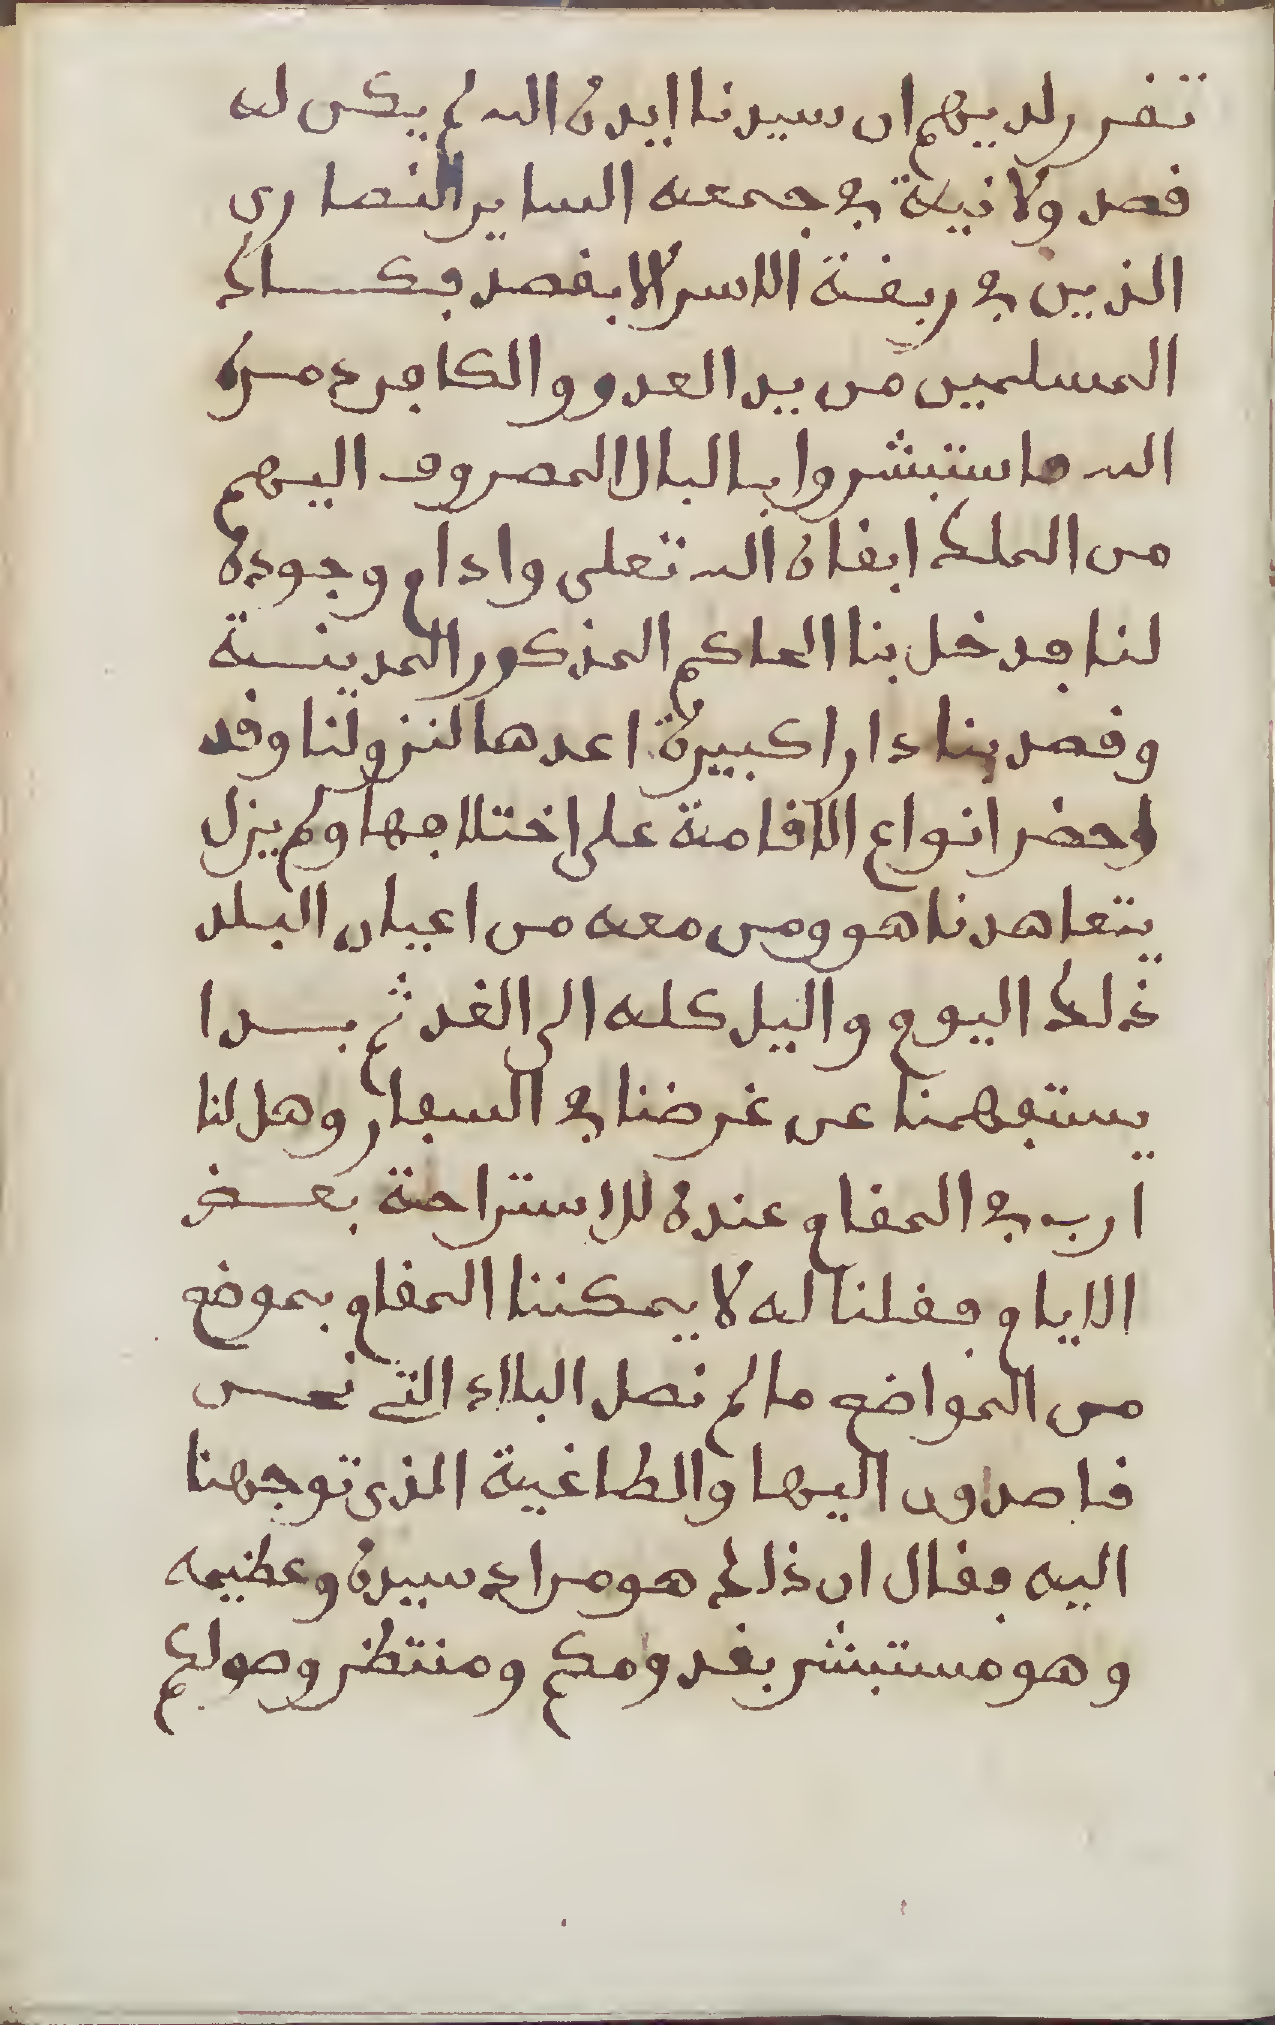 تقرر لديهم ان سيدنا ايده الله لم يكن له
قصد ولا نية في جمعه الساير النصارى
الذين في ربقة الاسر الا بقصد فكاك
المسلمين من يد العدو والكافر دمره
الله فاستبشروا بالبال المصروف اليهم
من الملك ابقاه الله تعلى وادام وجوده
لنا فدخل بنا الحاكم المذكور المدينة
وقصد بنا دارا كبيرة اعدها لنزولنا وقد
احضر انواع الاقامة على اختلافها ولم يزل
يتعاهدنا هو ومن معه من اعيان البلد
ذلك اليوم واليل كله الى الغد ثم بدا
يستفهمنا عن غرضنا في السفار وهل لنا
ارب في المقام عنده للاستراحة بعض
الايام فقلنا له لا يمكننا المقام بموضع
من المواضع ما لم نصل البلاد التي نحن
قاصدون اليها والطاغية الذي توجهنا
اليه فقال ان ذلك هو مراد سيده وعظيمه
وهو مستبشر بقدومكم ومنتظر وصولكم